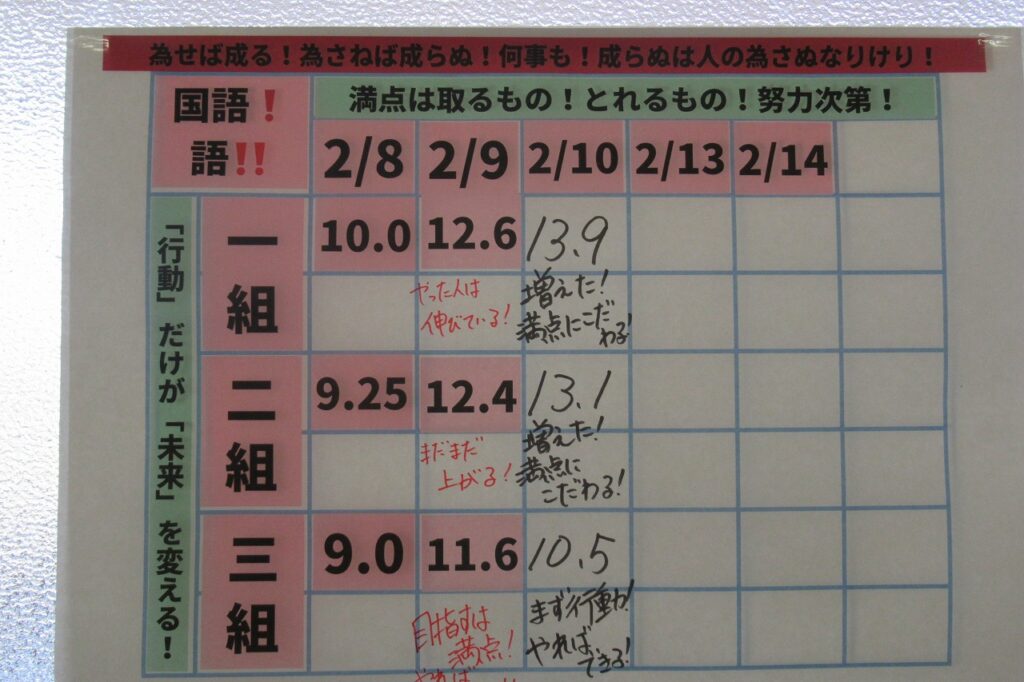 為せば成る！為さねば成らぬ！何事も！成らぬは人の為さぬなりけり！
国語！
語!!
満点は取るもの！とれるもの！努力次第！
2/8 2/9 2/10 2/13 2/14
「行動」だけが「未来」を変える！
一組
10.0 12.6 13.9
やった人は
伸びている!
増えた!
満点にこだ
わる!
二組
9.25 12.4 13.1
まだまだ
上がる!
増えた!
満点に
こだわる!
三組
9.0 11.6 10.5
目指すは
満点!
やれば
まず行動!
やれば
できる!